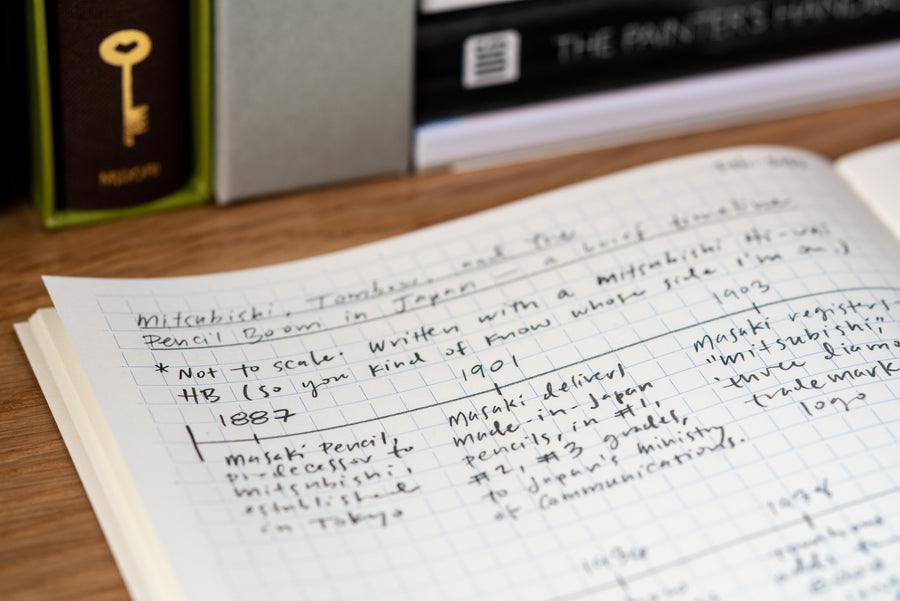 MIDORI
THE PAINTER'S HANDBOOK
Mitsubishi, Tombow, and the
Pencil Boom in Japan – a brief timeline
* Not to scale. Written with a Mitsubishi Hi-uni
HB (so you kind of know whose side I'm on.)
1887
Masaki Pencil,
predecessor to
Mitsubishi,
established
in Tokyo
1901
Masaki delivers
made-in-Japan
pencils, in #1,
#2, #3 grades,
to Japan's Ministry
of Communications.
1903
Masaki registers
"Mitsubishi,"
"three diamo
trademark
logo